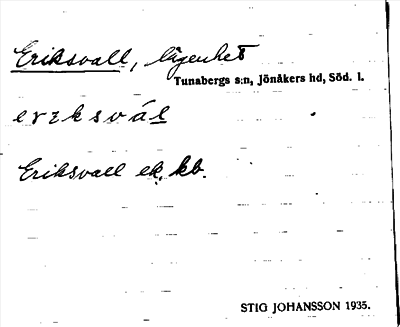 Eriksvall, lägenhet
Tunabergs s:n, Jönåkers hd, Söd. l.
Eriksvall ek. kb.
STIG JOHANSSON 1935.